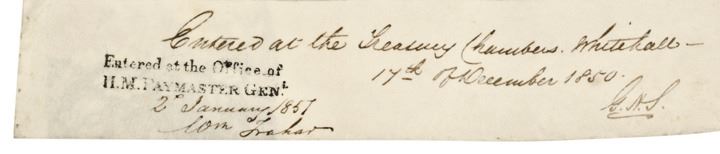 Entered at the Treasury Chambers. Whitehall —
17th of December 1850.
G.A.S.
Entered at the Office of
H.M. PAYMASTER GENL.
2d January 1851
Wm